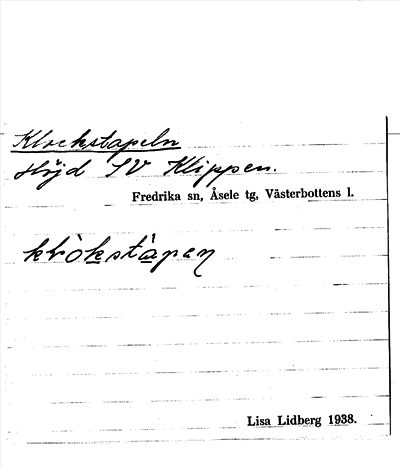 Klockstapeln
Höjd SV Klippen.
Fredrika sn, Åsele tg, Västerbottens l.
Lisa Lidberg 1938.